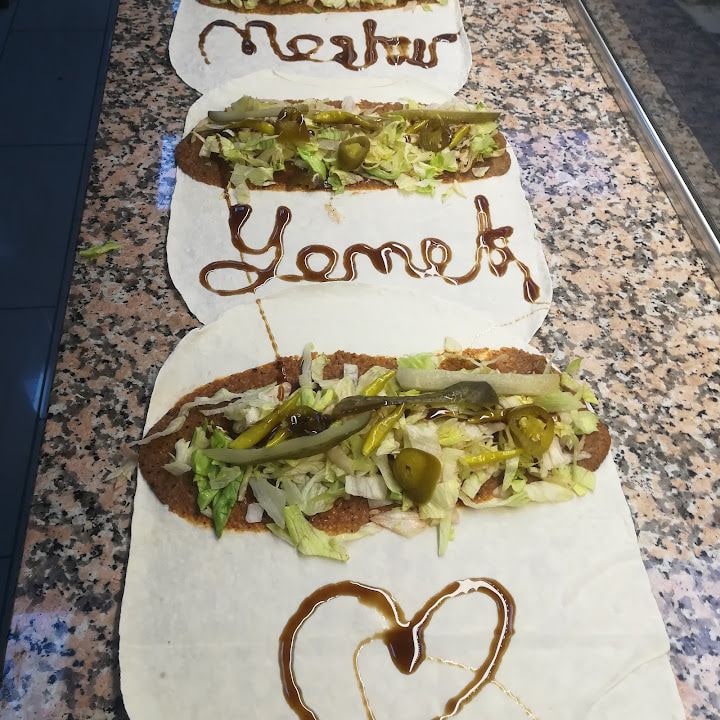 Meshur
Yemek